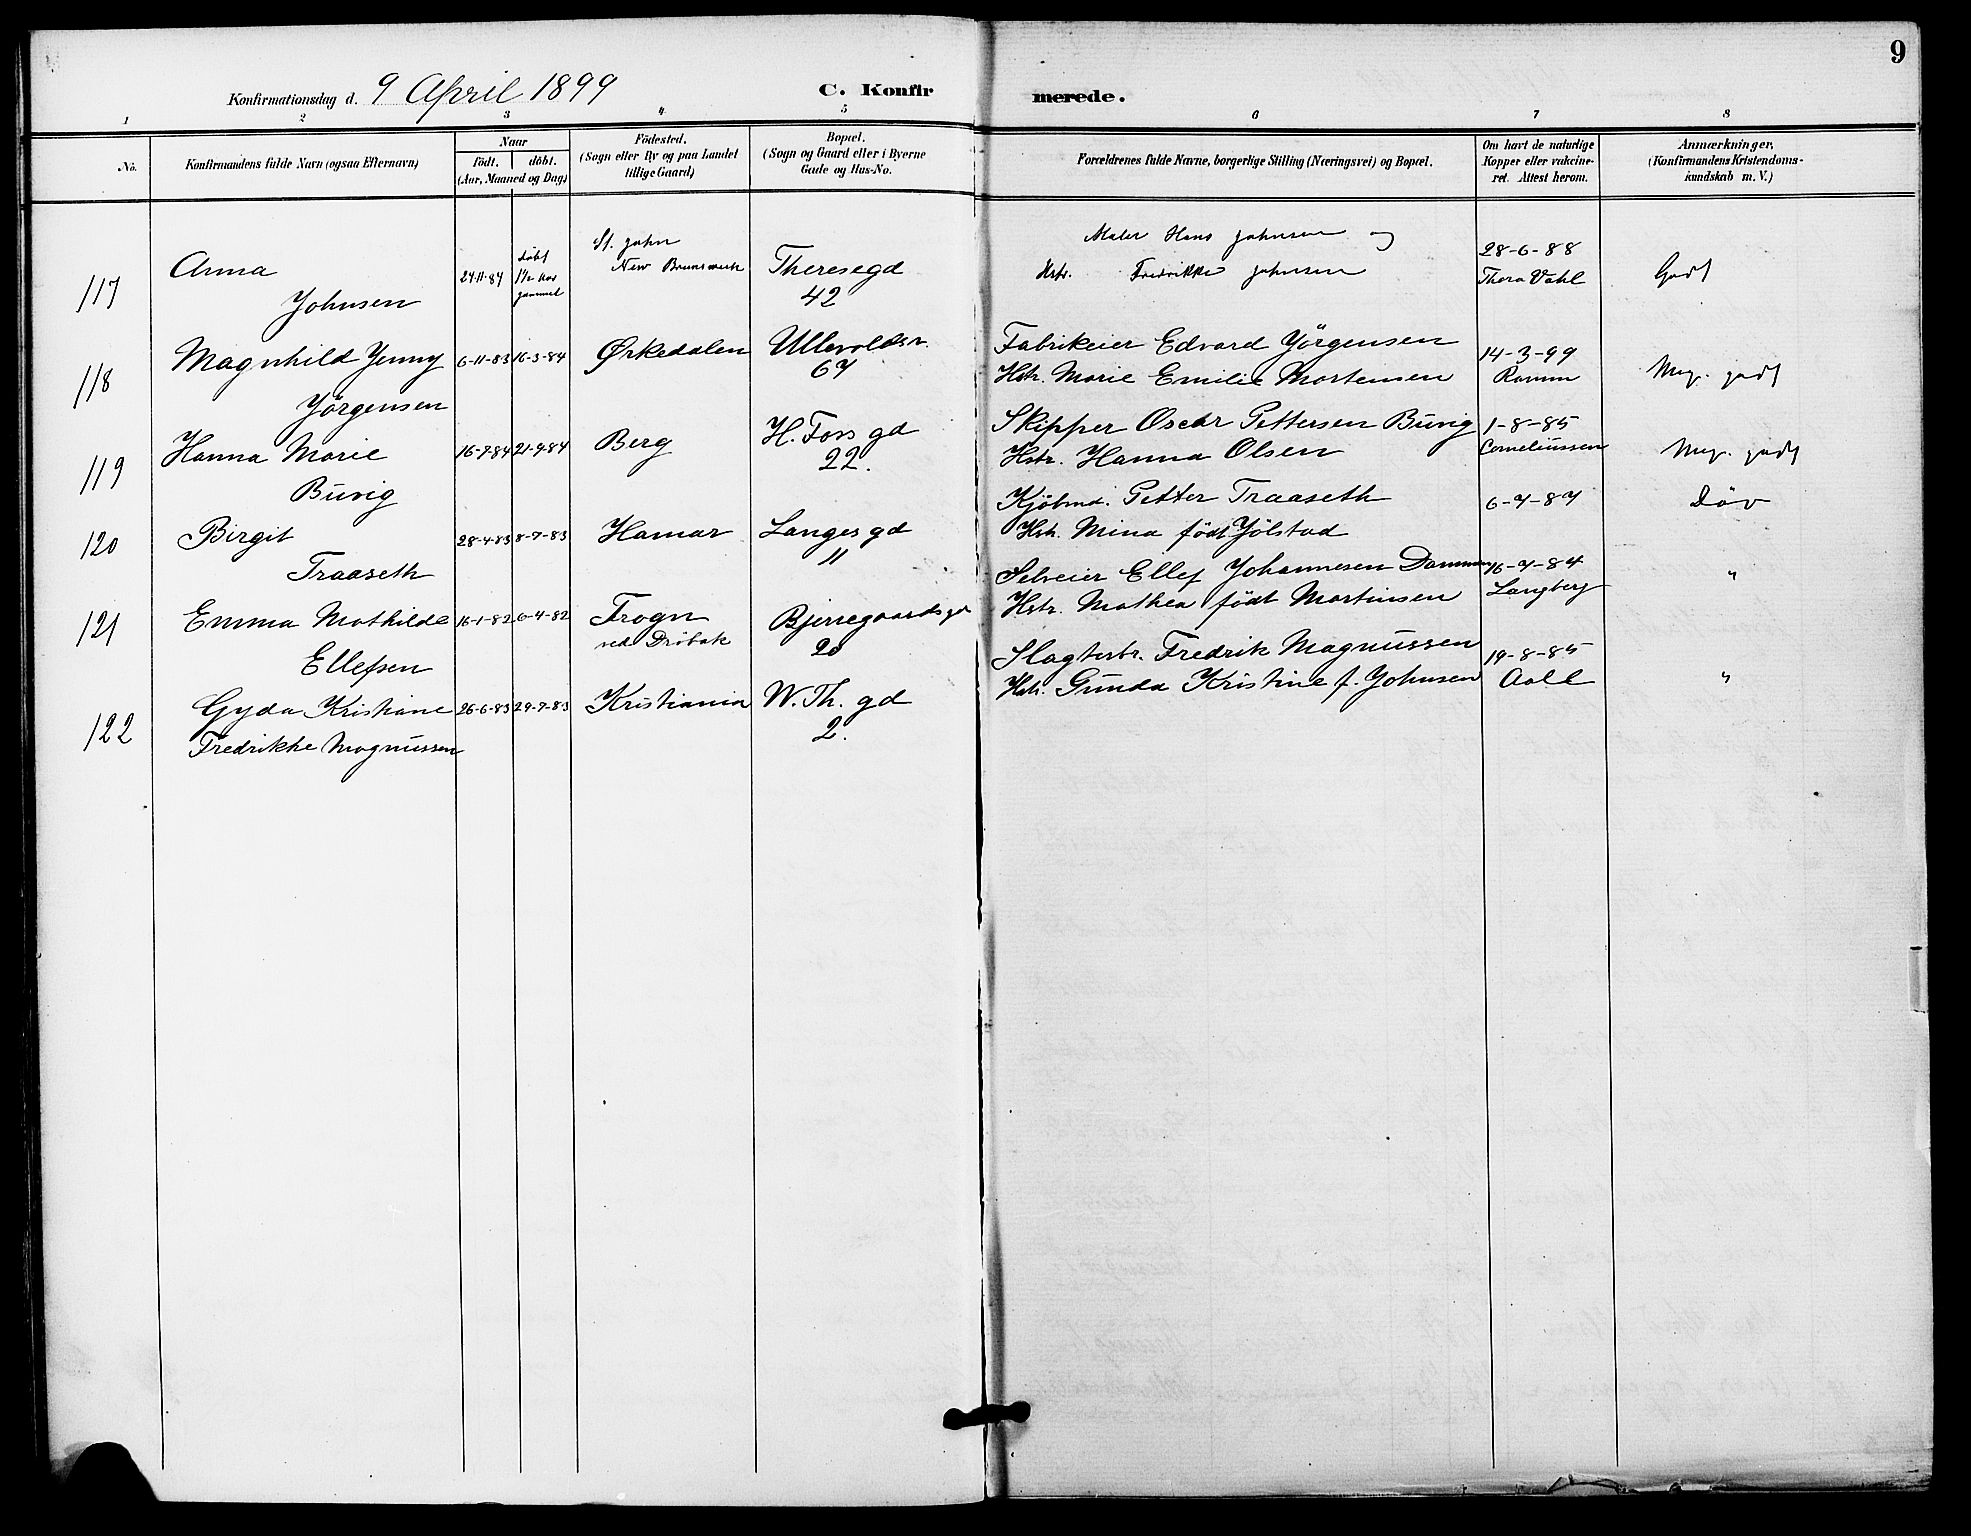 9
Konfirmationsdag d. 9 April 1899 C. Konfirmerede.
1 2 3 4 5 6 7 8
No. Konfirmandens fulde Navn (ogsaa Efternavn)
Naar
födt. döbt.
(Aar, Maaned og Dag)
Födested.
(Sogn eller By og paa Landet
tillige Gaard)
Bopæl.
(Sogn og Gaard eller i Byerne
Gade og Hus-No.
Forældrenes fulde Navne, borgerlige Stilling (Næringsvei) og Bopæl.
Om havt de naturlige
Kopper eller vakcine-
ret. Attest herom.
Anmærkninger,
(Konfirmandens Kristendoms-
kundskab m. V.)
117 Anna
Johnsen
24-11-84
döbt
1½
gammel
St. John
New Brunswick
Theresegd
42
Maler Hans Johnsen og
Hstr. Fredrikke Johnsen
28-6-88
Thora Vahl
Godt
118 Magnhild Jenny
Jörgensen
6-11-83 16-3-84
Ørkedalen
Ullevoldsv.
67
Fabrikeier Edvard Jörgensen
Hstr. Marie Emilie Mortensen
14-3-99
Ramm
Meg. godt
119 Hanna Marie
Buvig
16-7-84 21-9-84
Berg
H. Foss gd
22.
Skipper Oscar Pettersen Buvig
Hstr. Hanna Olsen
1-8-85
Corneliussen
Meg. godt
120 Birgit
Traaseth
28-4-83 8-7-83
Hamar
Langes gd
11
Kjöbmd. Petter Traaseth
Hstr. Mina födt Jölstad
6-7-87
Döv
121 Emma Mathilde
Ellefsen
16-1-82 6-4-82
Frogn
ved Dröbak
Bjerregaards gd
20
Selveier Ellef Johannesen Dammen
Hstr. Mathea födt Martinsen
16-7-84
Langberg
"
122 Gyda Kristiane
Fredrikke Magnussen
26-6-83 29-7-83
Kristiania
W. Th. gd
2.
Slagterbr. Fredrik Magnussen
Hstr. Gunda Kristine f. Johnsen
19-8-85
Aall
"